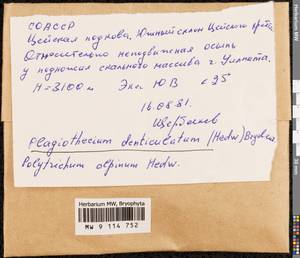 СОАССР
Цейская подкова. Южный склон Цейского хребта.
Относительно неподвижная осыпь
у подножия скального массива г. Уилпата.
H = 3100 м Экс ЮВ < 25
16.08.81.
Щербаков
Plagiothecium denticulatum (Hedw.)
Polytrichum alpinum Hedw.
Herbarium MW, Bryophyta
MW 9 114 752